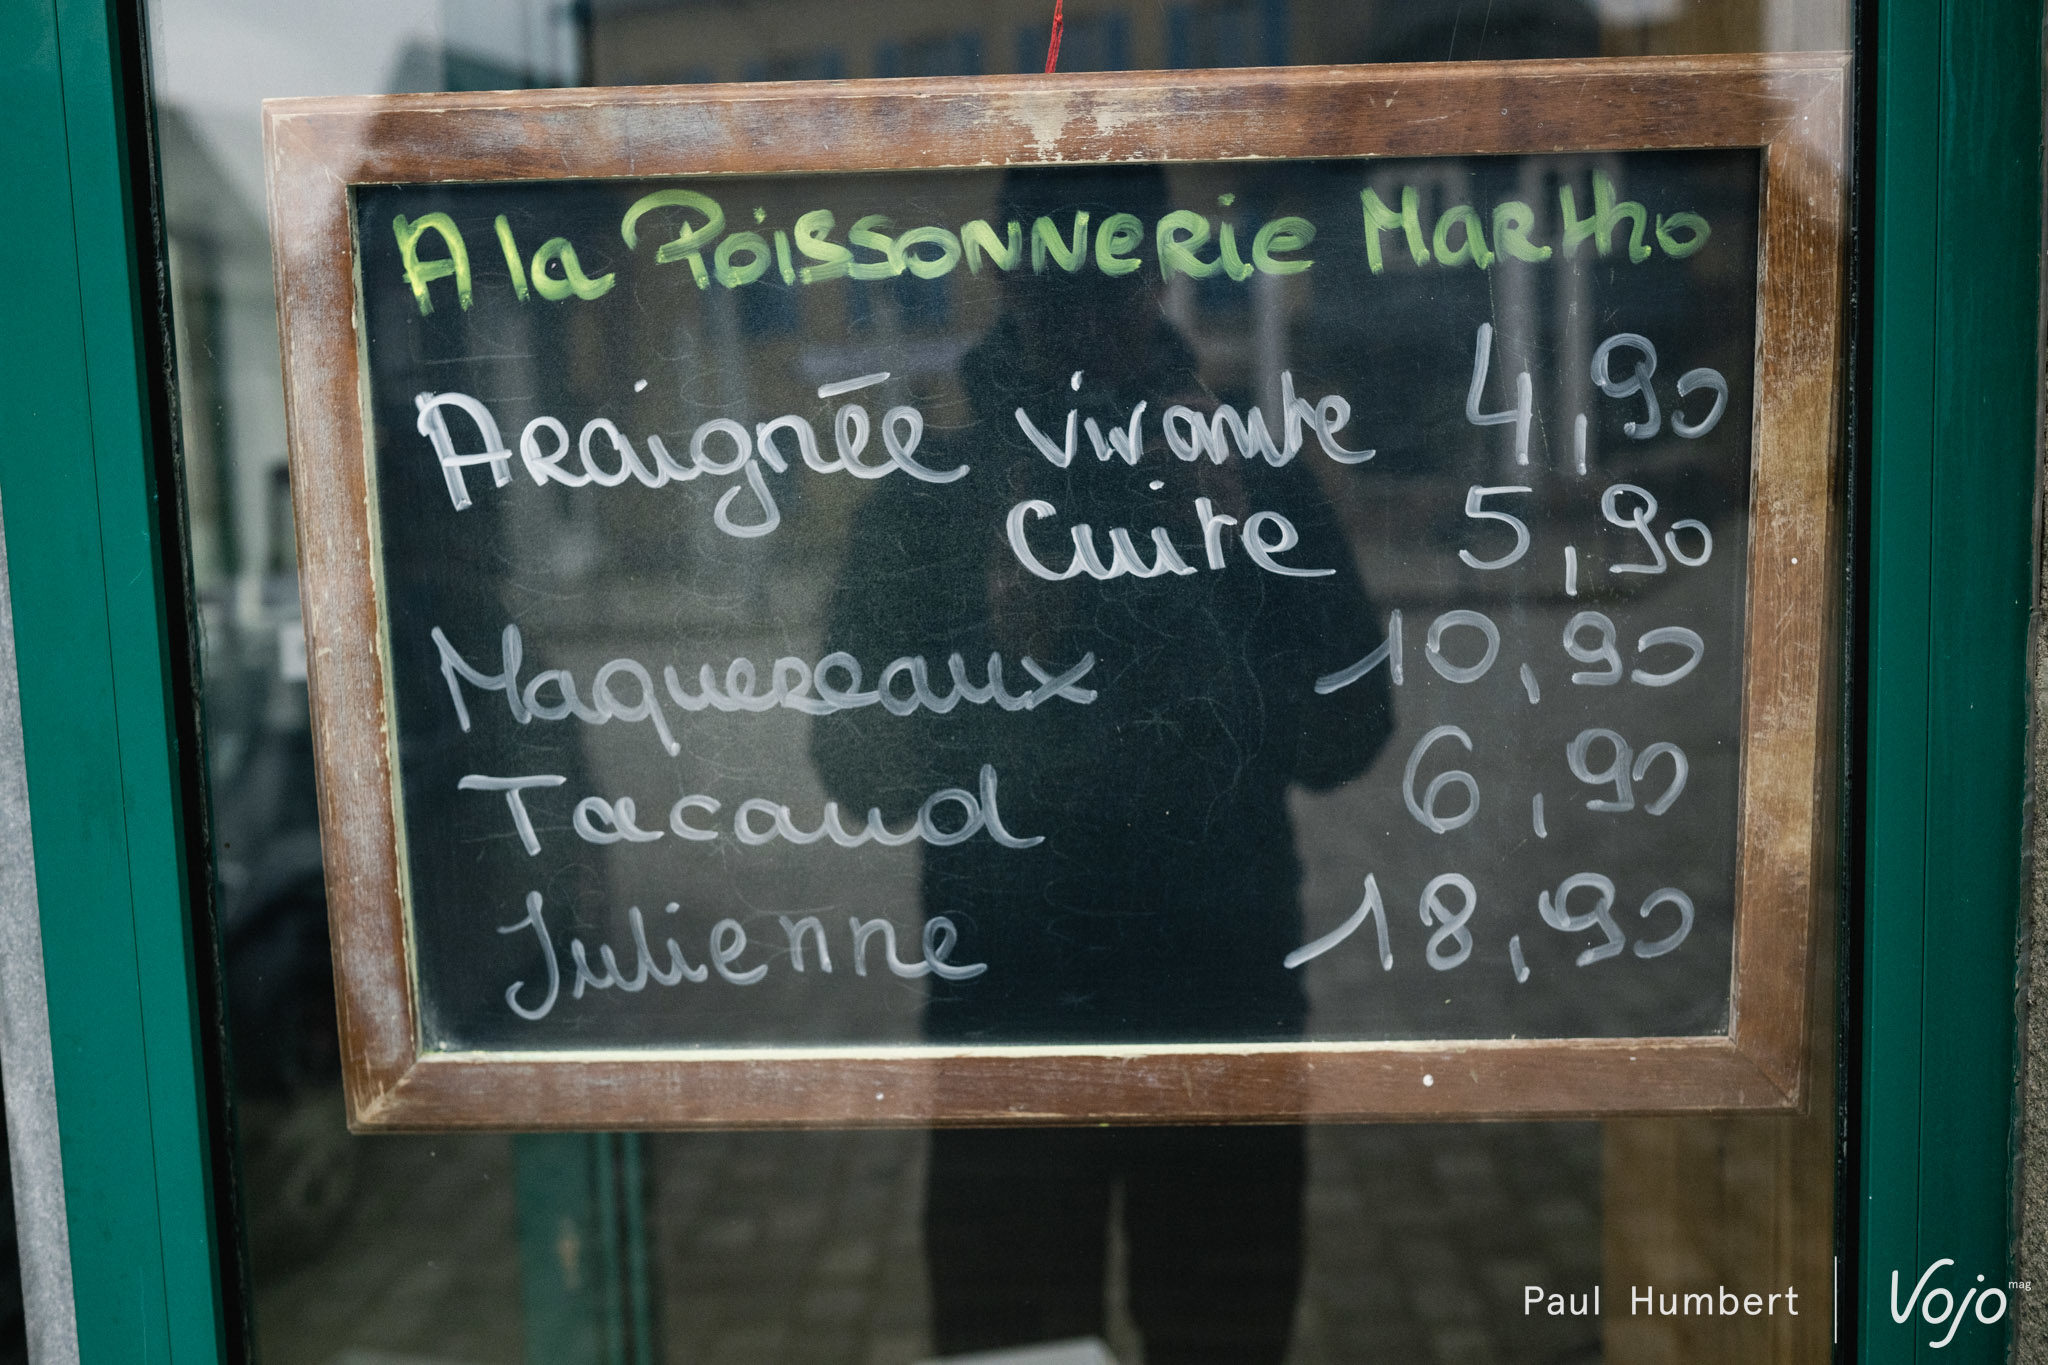 A la Poissonnerie Martho
Araignée vivante 4,90
Cuite 5,90
Maquereaux 10,90
Tacaud 6,90
Julienne 18,90
Paul Humbert Vojo mag